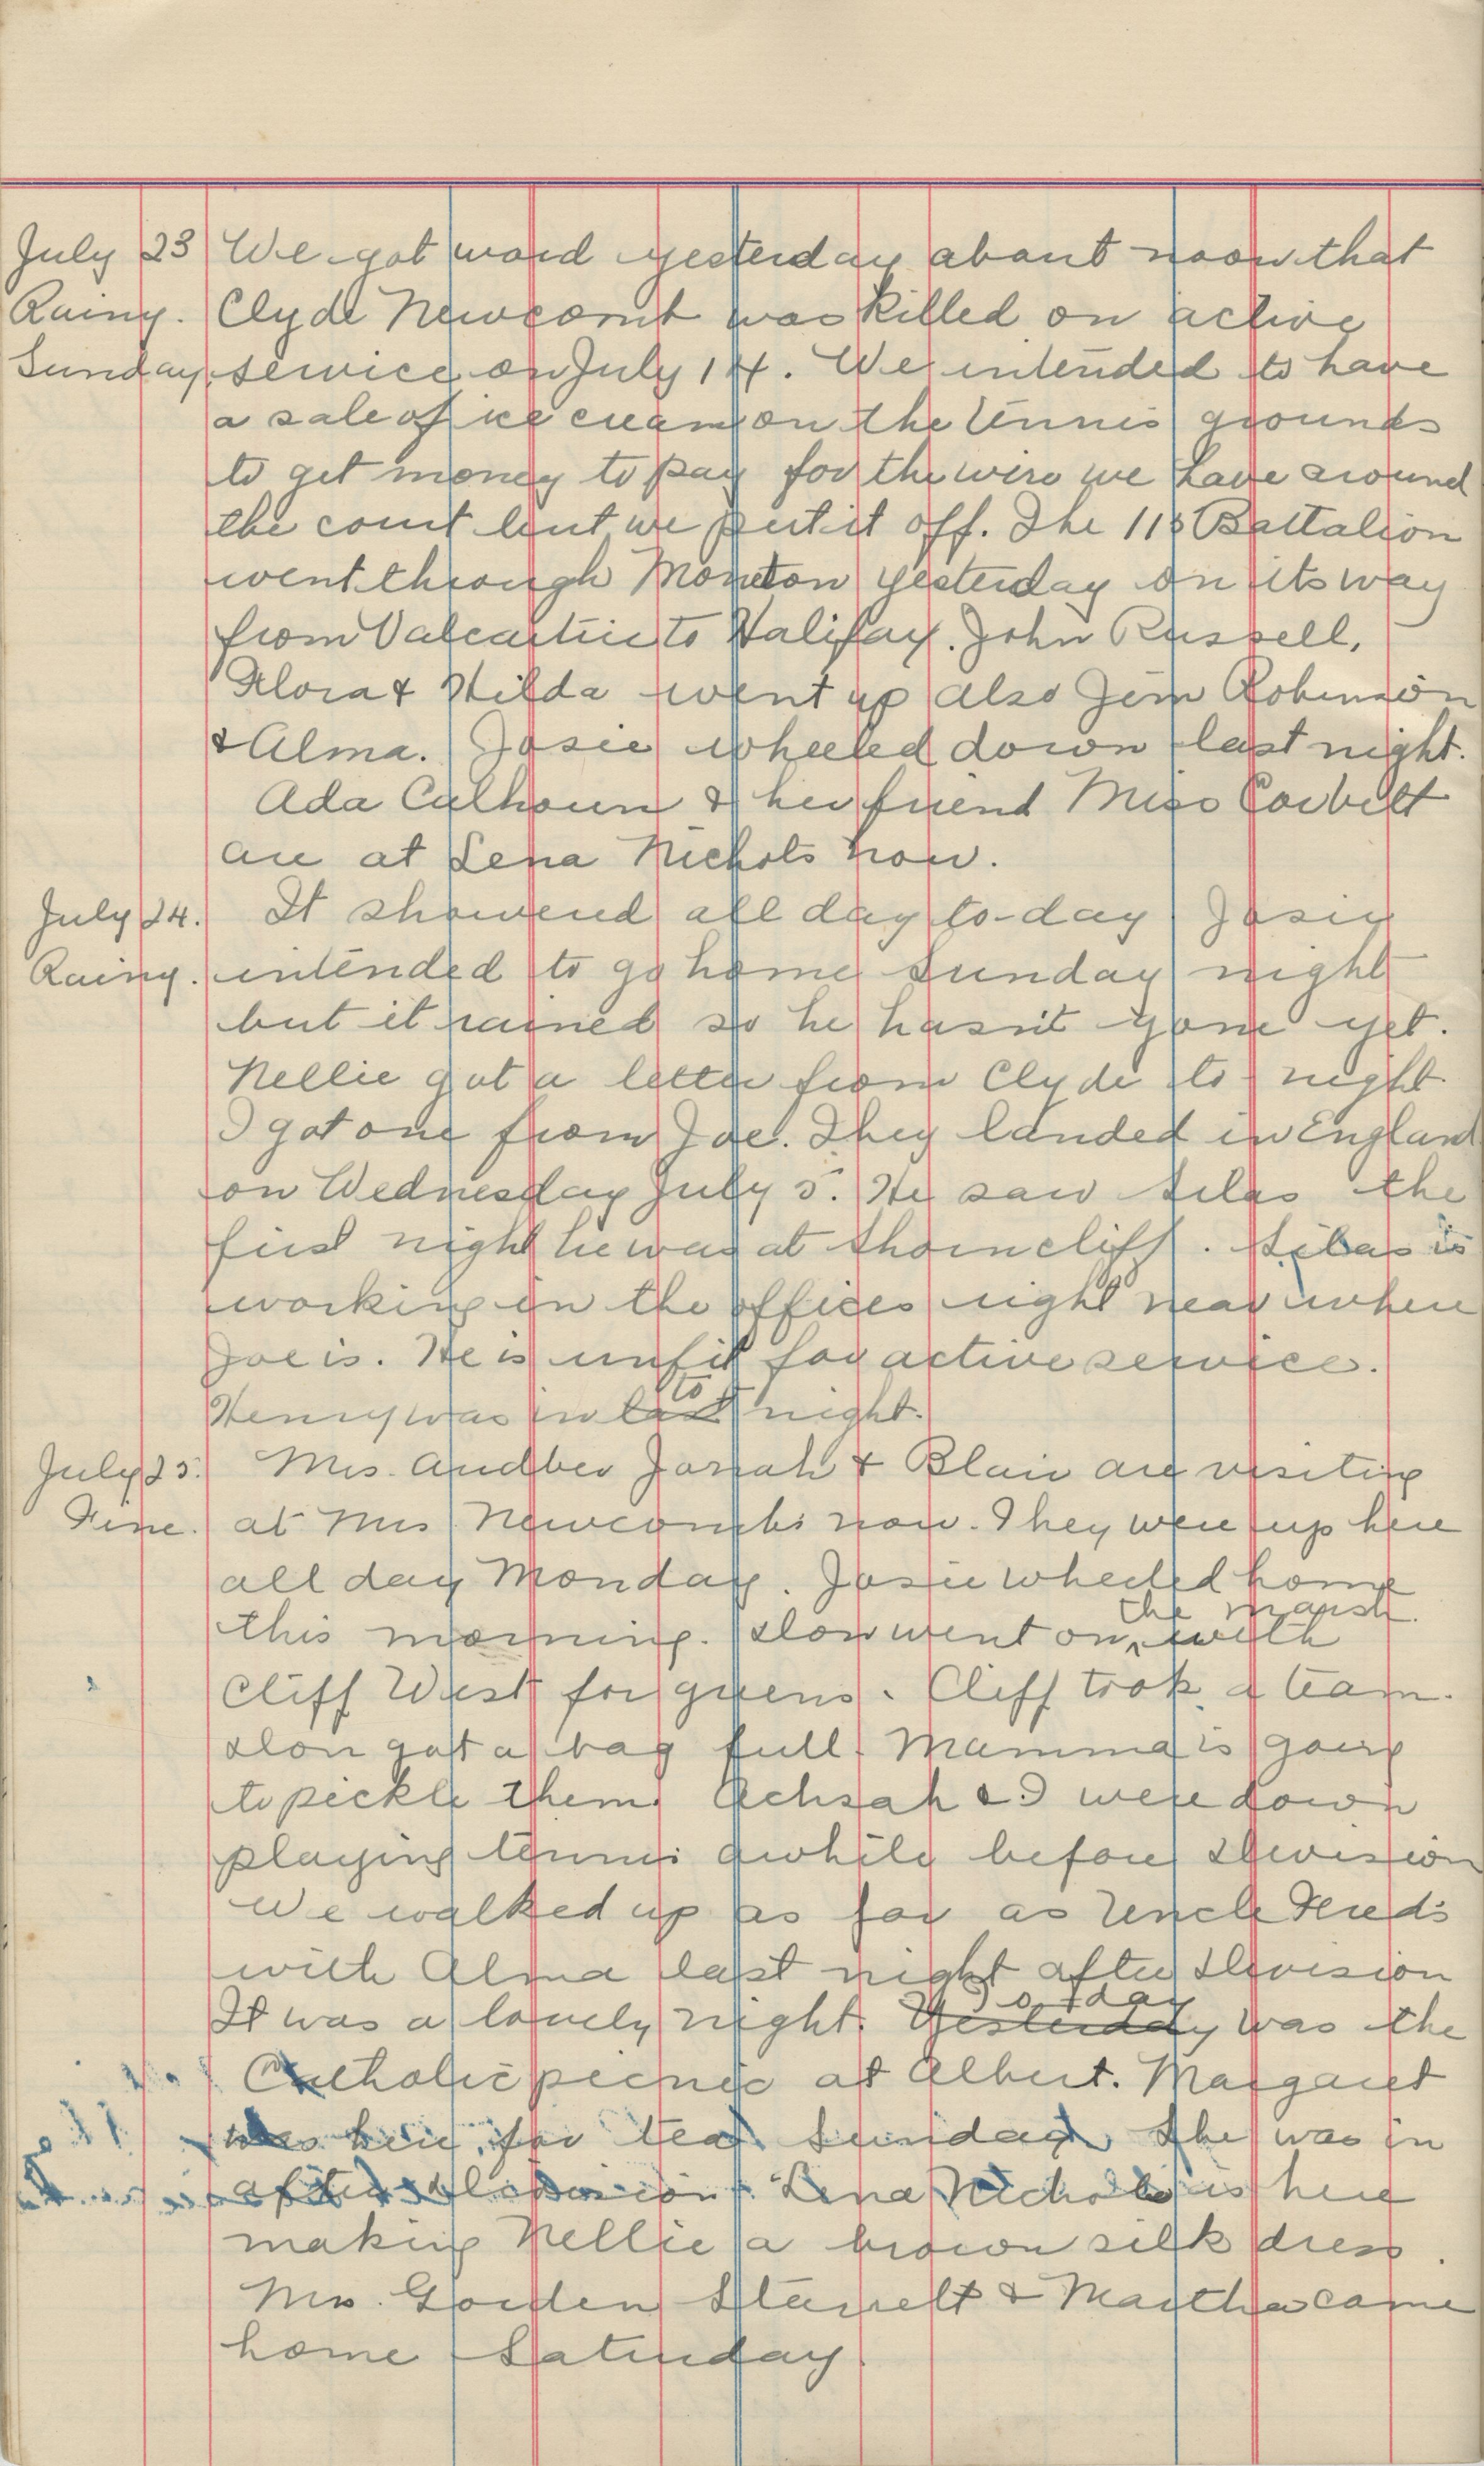 July 23 We got word yesterday about noon that
Rainy. Clyde Newcomb was killed on active
Sunday service on July 14. We intended to have
a sale of ice cream on the tennis grounds
to get money to pay for the wire we have around
the court but we put it off. The 115 Battalion
went through Moncton yesterday on its way
from Valcartier to Halifax. John Russell,
Flora & Hilda went up also Jim Robinson
& Alma. Josie wheeled down last night.
Ada Calhoun & her friend Miss Corbett
are at Lena Nichols now.
July 24. It showered all day to-day Josie
Rainy. intended to go home Sunday night
but it rained so he hasn't gone yet.
Nellie got a letter from Clyde to-night
I got one from Joe. They landed in England
on Wednesday July 5. He saw Silas the
first night he was at Shorncliff. Silas is
working in the offices right near where
Joe is. He is unfit for active service.
to
Henry was in last night.
July 25. Mrs. Jonah & Blair are visiting
Fine. at Mrs Newcomb's now. They were up here
all day Monday. Josie wheeled home
the marsh
this morning. Don went on with
Cliff West for greens. Cliff took a team.
Don got a bag full. Mamma is going
to pickle them. Achsah & I were down
playing tennis awhile before Division
We walked up as far as Uncle Fred's
with Alma last night after Division
To-day
It was a lovely night. Yesterday was the
Catholic picnic at Albert. Margaret
was here for tea Sunday. She was in
after Division. Lena Nichols is here
making Nellie a brown silk dress.
Mrs. Gorden Starrett & Martha came
home Saturday